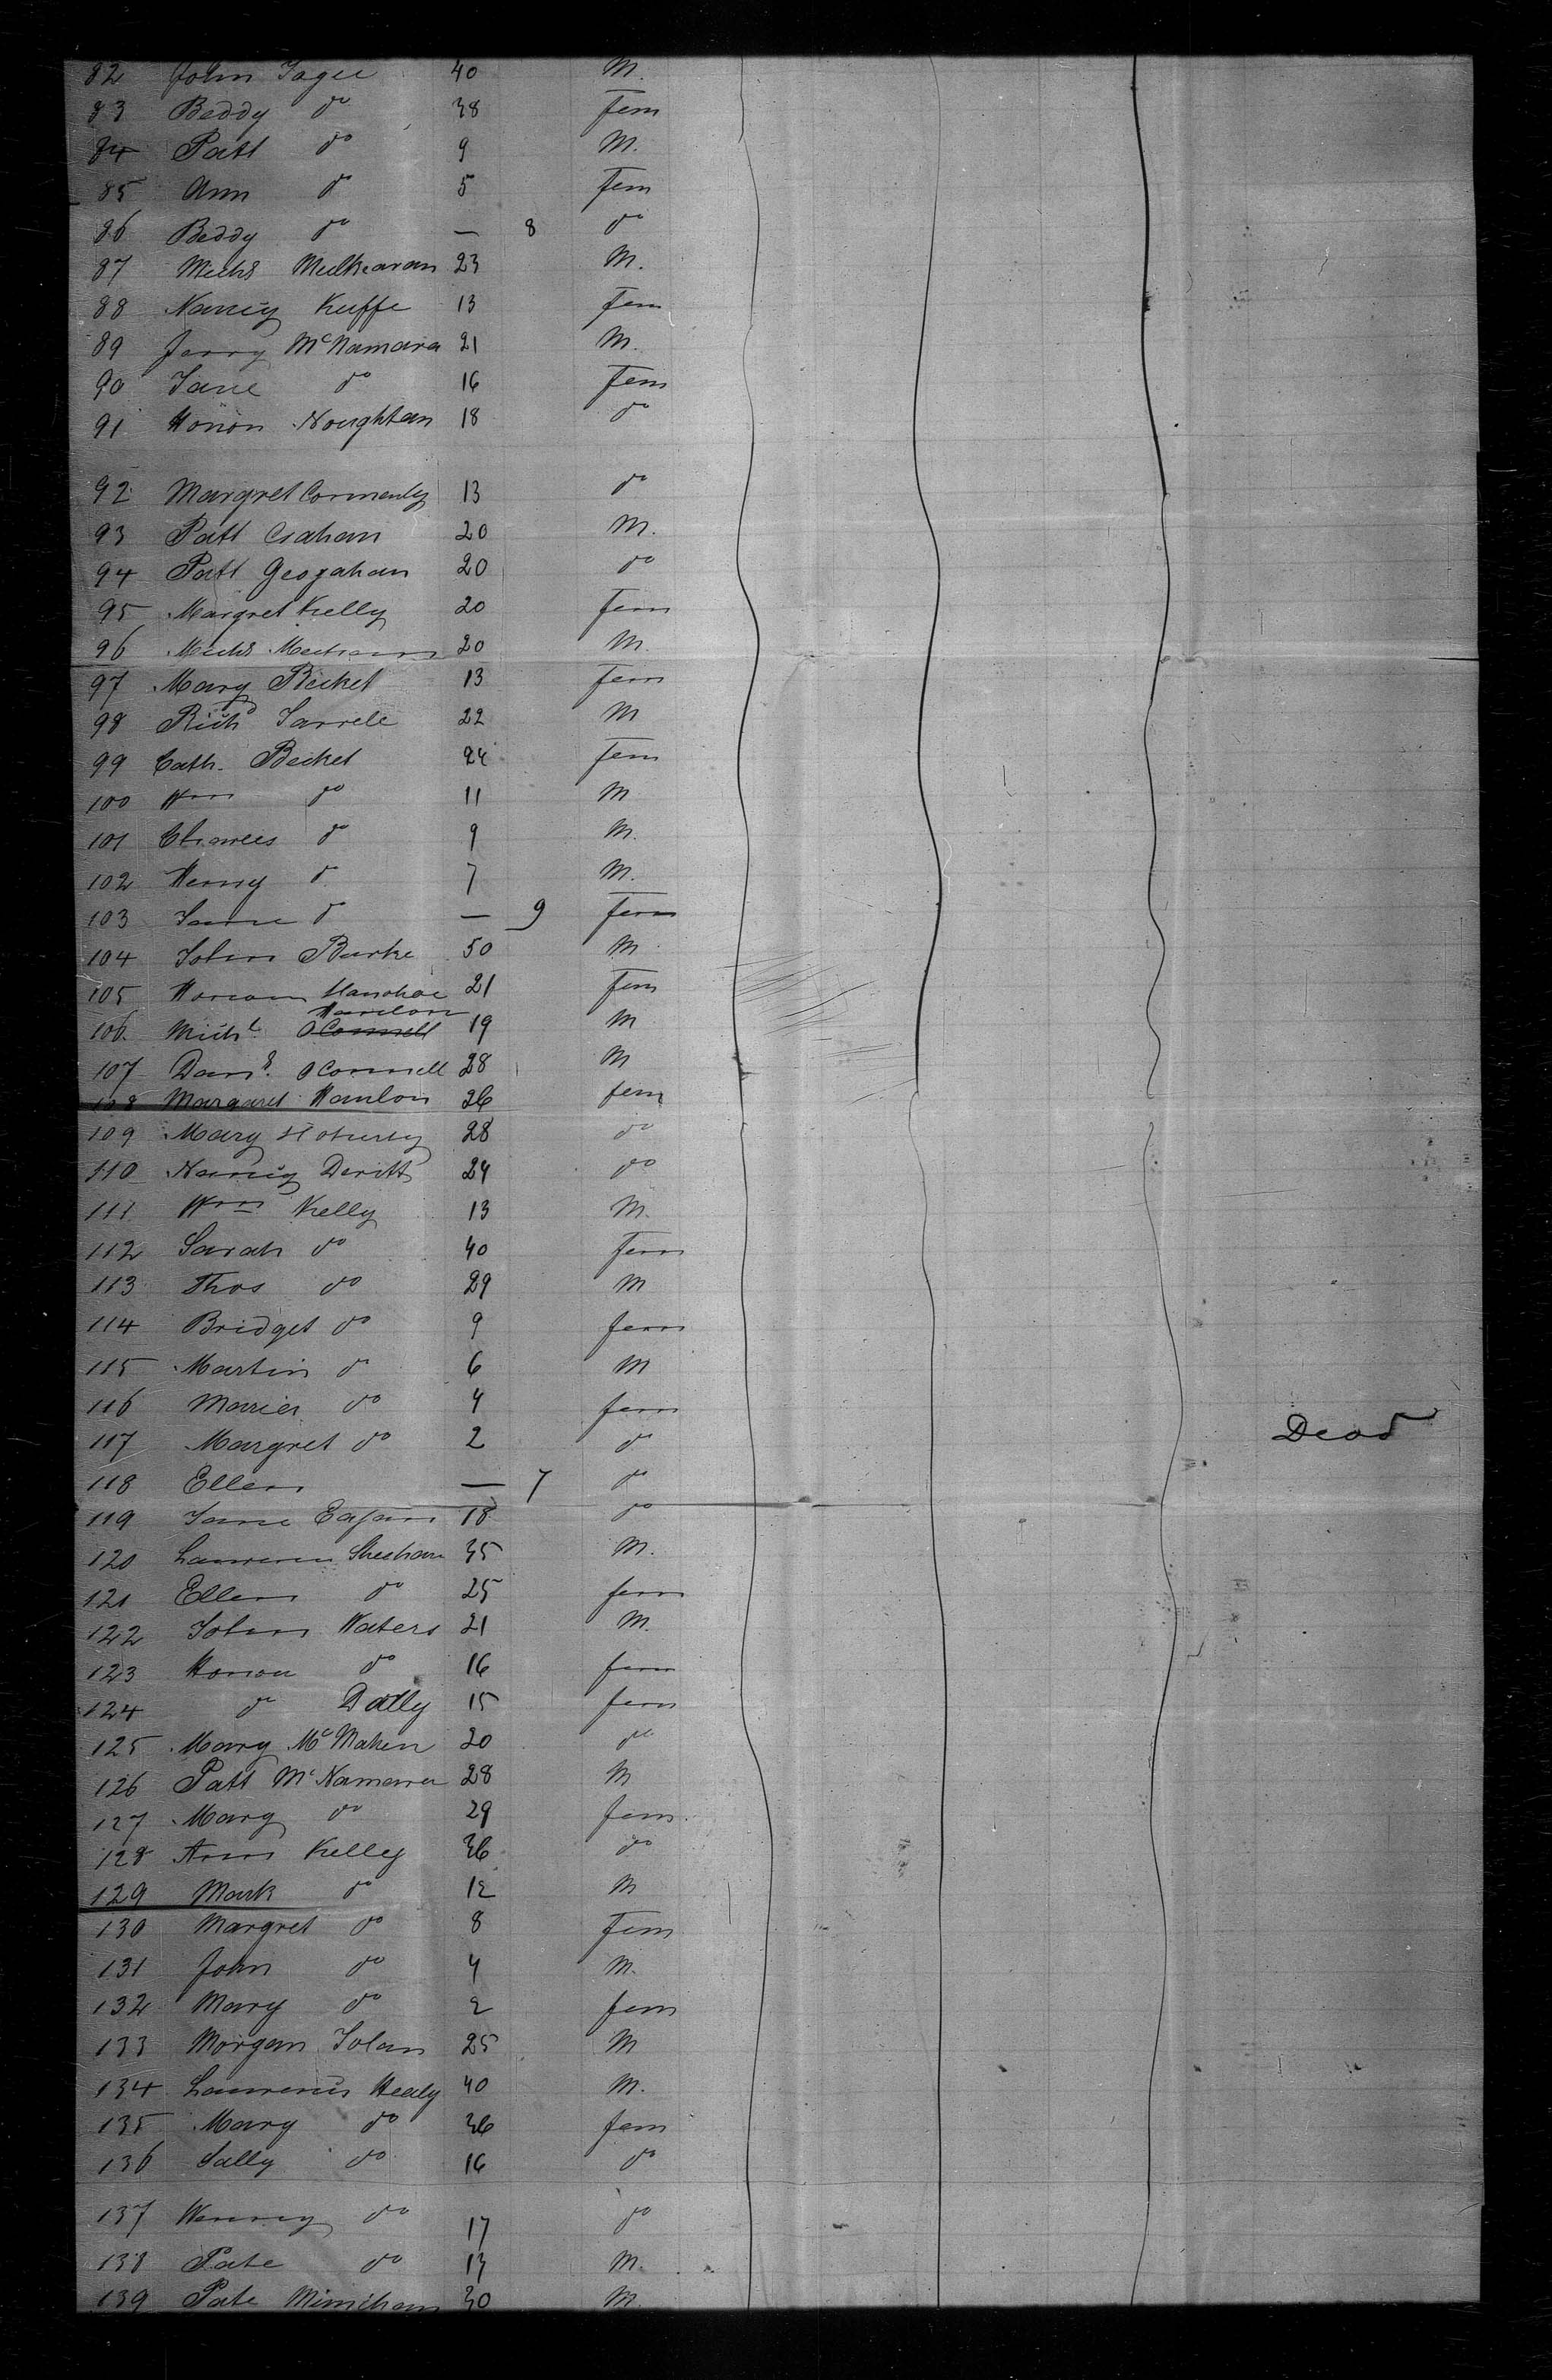 82 John Tagee 40 M.
83 Beddy do 38 Fem
84 Patt do 9 M.
85 Ann do 5 Fem
86 Beddy do — 8 do
87 Michl 23 M.
88 Nancy Kuffe 13 Fem
89 Jerry McNamara 21 M.
90 Jane do 16 Fem
91 Honor Noughtan 18 do
92 Margret 13 do
93 Patt 20 M.
94 Patt Geogahan 20 do
95 Margret Kelly 20 Fem
96 Michl 20 M.
97 Mary Becket 13 Fem
98 Richd 22 M
99 Cath. Becket 24 Fem
100 Wm do 11 M
101 Charles do 9 M.
102 Henry do 7 M.
103 Jane do — 9 Fem
104 John Burke 50 M
105 21 Fem
Hanlon
106. Michl OConnell 19 M
107 Danl. OConnell 28 M
108 Margaret Hanlon 26 fem
109 Mary 28 do
110 Nancy Devitt 24 do
111 Wm Kelly 13 M.
112 Sarah do 40 Fem
113 Thos do 29 M
114 Bridget do 9 fem
115 Martin do 6 M
116 Maria do 4 fem
117 Margret do 2 do Dead
118 Ellen — 7 do
119 Jane Eagan 18 do
120 Lawrence Sheehan 35 M.
121 Ellen do 25 fem
122 John Waters 21 M.
123 Honor do 16 fem
124 do Dally 15 fem
125 Mary McMahen 20 do
126 Patt McNamara 28 M
127 Mary do 29 fem
128 Ann Kelley 36 do
129 Mark do 12 M
130 Margret do 8 Fem
131 John do 4 M.
132 Mary do 2 fem
133 Morgan Tolan 25 M
134 Lawrence Healy 40 M.
135 Mary do 36 fem
136 Sally do 16 do
137 do 17 do
138 Pate do 13 M.
139 Pate Minihan 30 M.